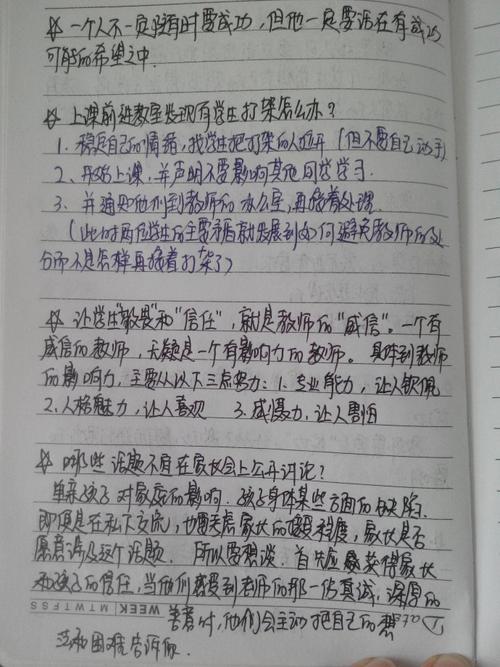 ☆ 一个人不一定随时要成功，但他一定要活在有成功
可能的希望之中.
☆ 上课前进教室发现有学生打架怎么办？
1. 稳定自己的情绪，找学生把打架的人拉开（但不要自己动手）
2、开始上课，并声明不要影响其他同学学习.
3、并通知他们到教师的办公室，再接着处理.
（此时两位学生的主要矛盾就发展到如何避免教师的处
分而不是怎样再接着打架了）
☆ 让学生"敬畏"和"信任"，就是教师的"威信"。一个有
威信的教师，无疑是一个有影响力的教师。具体到教师
的影响力，主要从以下三点努力：1、专业能力，让人钦佩
2、人格魅力，让人喜欢 3、威慑力，让人害怕
☆ 哪些话题不宜在家长会上公开讨论？
单亲孩子对家庭的影响. 孩子身体某些方面的缺陷.
即便是在私下交流，也要考虑家长的接受程度，家长是否
愿意涉及这个话题. 所以要想谈. 首先应获得家长
和孩子的信任，当他们感受到老师的那一份真诚，深厚的
WEEK M T W T F S S
Date
善意时，他们会主动把自己的想
法和困难告诉你.